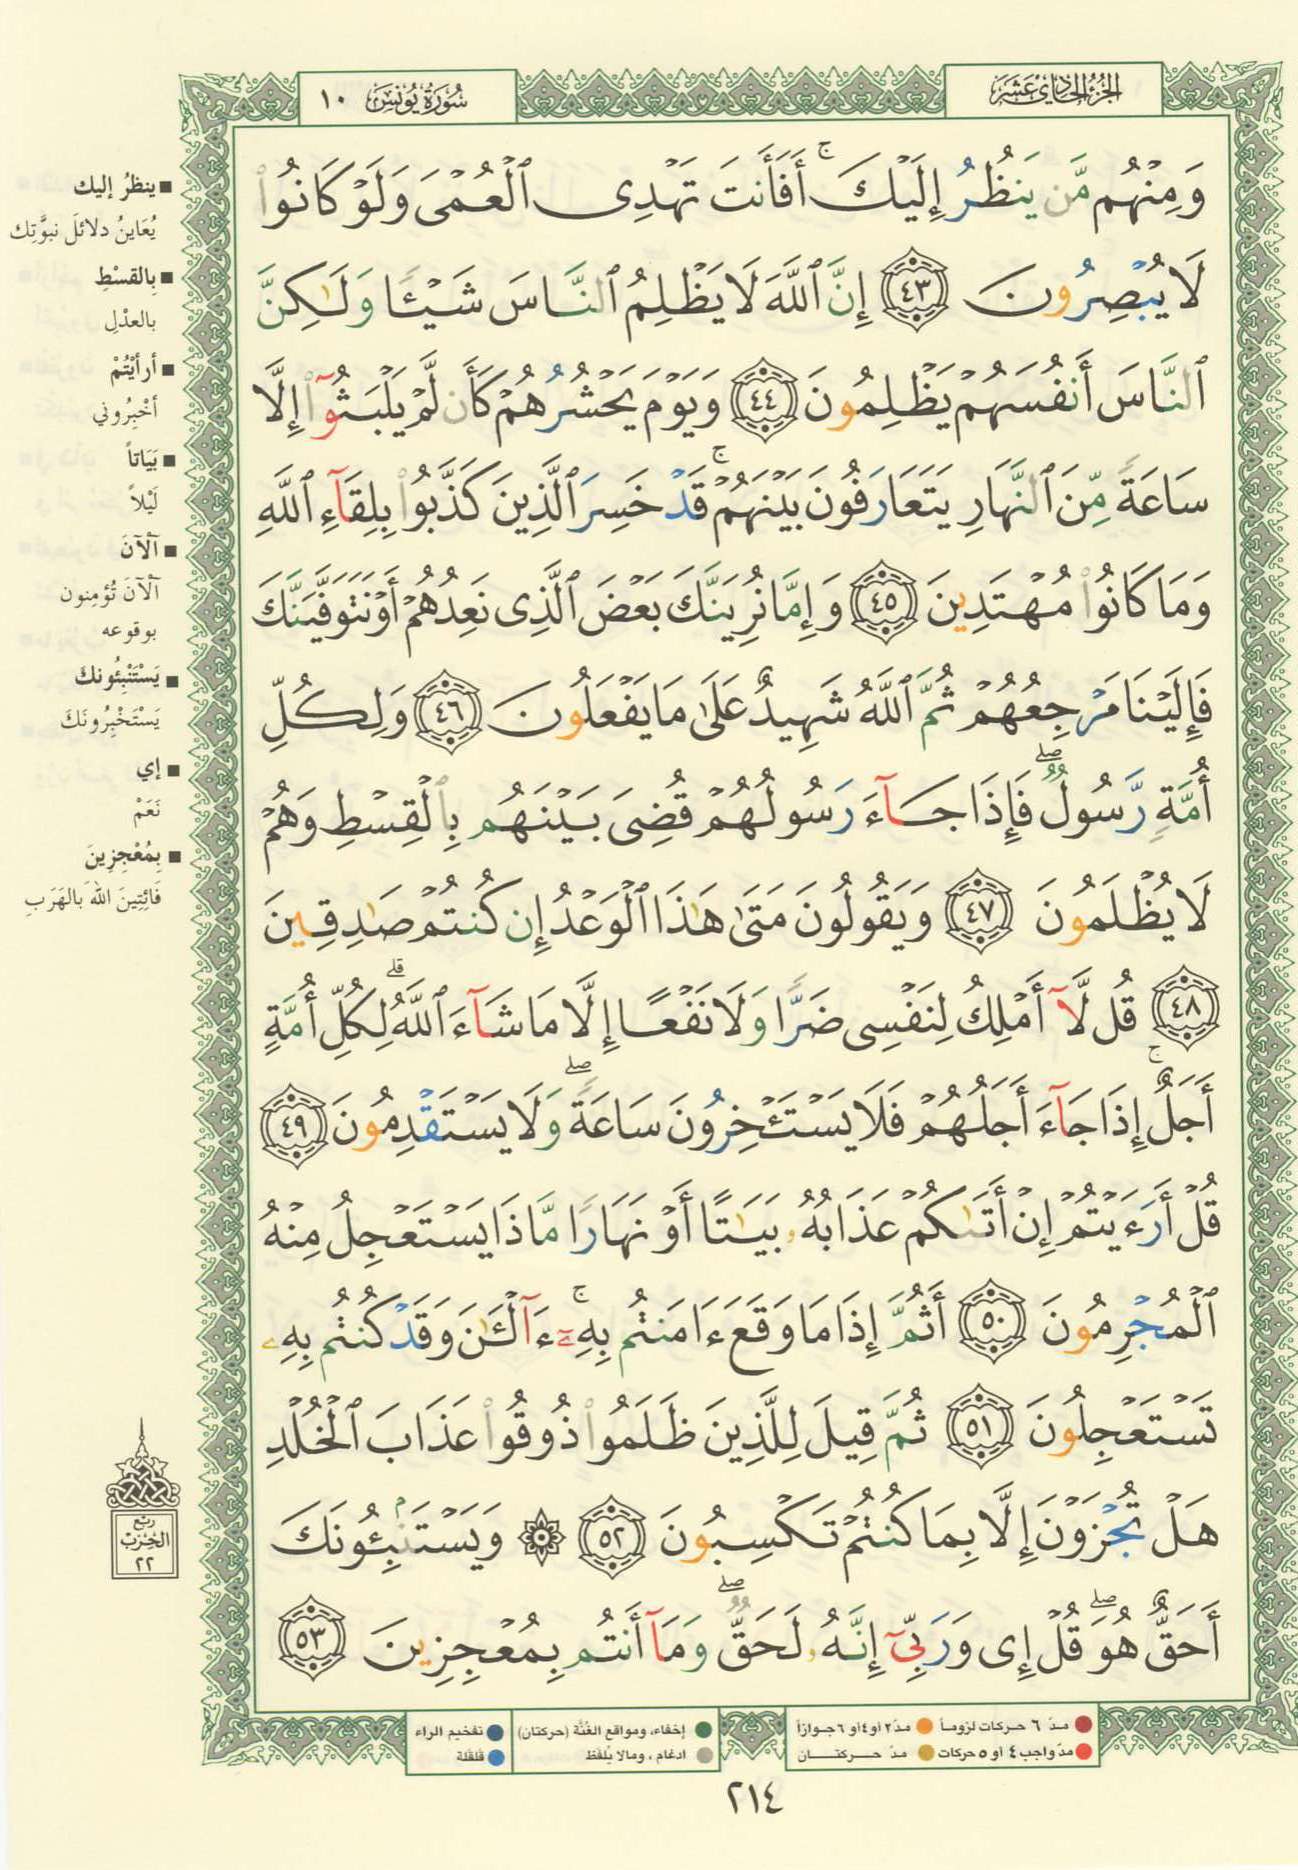 الجزء الحادي عشر
سورة يونس ١٠
وَمِنْهُم مَّن يَنظُرُ إِلَيْكَ ۚ أَفَأَنتَ تَهْدِى ٱلْعُمْىَ وَلَوْ كَانُوا۟
لَا يُبْصِرُونَ ٤٣ إِنَّ ٱللَّهَ لَا يَظْلِمُ ٱلنَّاسَ شَيْـًٔا وَلَـٰكِنَّ
ٱلنَّاسَ أَنفُسَهُمْ يَظْلِمُونَ ٤٤ وَيَوْمَ يَحْشُرُهُمْ كَأَن لَّمْ يَلْبَثُوٓا۟ إِلَّا
سَاعَةً مِّنَ ٱلنَّهَارِ يَتَعَارَفُونَ بَيْنَهُمْ ۚ قَدْ خَسِرَ ٱلَّذِينَ كَذَّبُوا۟ بِلِقَآءِ ٱللَّهِ
وَمَا كَانُوا۟ مُهْتَدِينَ ٤٥ وَإِمَّا نُرِيَنَّكَ بَعْضَ ٱلَّذِى نَعِدُهُمْ أَوْ نَتَوَفَّيَنَّكَ
فَإِلَيْنَا مَرْجِعُهُمْ ثُمَّ ٱللَّهُ شَهِيدٌ عَلَىٰ مَا يَفْعَلُونَ ٤٦ وَلِكُلِّ
أُمَّةٍ رَّسُولٌ ۖ فَإِذَا جَآءَ رَسُولُهُمْ قُضِىَ بَيْنَهُم بِٱلْقِسْطِ وَهُمْ
لَا يُظْلَمُونَ ٤٧ وَيَقُولُونَ مَتَىٰ هَـٰذَا ٱلْوَعْدُ إِن كُنتُمْ صَـٰدِقِينَ
٤٨ قُل لَّآ أَمْلِكُ لِنَفْسِى ضَرًّا وَلَا نَفْعًا إِلَّا مَا شَآءَ ٱللَّهُ ۗ لِكُلِّ أُمَّةٍ
أَجَلٌ ۚ إِذَا جَآءَ أَجَلُهُمْ فَلَا يَسْتَـْٔخِرُونَ سَاعَةً ۖ وَلَا يَسْتَقْدِمُونَ ٤٩
قُلْ أَرَءَيْتُمْ إِنْ أَتَىٰكُمْ عَذَابُهُۥ بَيَـٰتًا أَوْ نَهَارًا مَّاذَا يَسْتَعْجِلُ مِنْهُ
ٱلْمُجْرِمُونَ ٥٠ أَثُمَّ إِذَا مَا وَقَعَ ءَامَنتُم بِهِۦٓ ۚ ءَآلْـَٔـٰنَ وَقَدْ كُنتُم بِهِۦ
تَسْتَعْجِلُونَ ٥١ ثُمَّ قِيلَ لِلَّذِينَ ظَلَمُوا۟ ذُوقُوا۟ عَذَابَ ٱلْخُلْدِ
هَلْ تُجْزَوْنَ إِلَّا بِمَا كُنتُمْ تَكْسِبُونَ ٥٢ ۞ وَيَسْتَنۢبِـُٔونَكَ
أَحَقٌّ هُوَ ۖ قُلْ إِى وَرَبِّىٓ إِنَّهُۥ لَحَقٌّ ۖ وَمَآ أَنتُم بِمُعْجِزِينَ ٥٣
■ ينظرُ إليك
يُعَاينُ دلائلَ نبوَّتِك
■ بِالقسْطِ
بالعدْلِ
■ أرأيْتُمْ
أخْبِرُوني
■ بَيَاتاً
لَيْلاً
■ آلْآنَ
آلْآنَ تُؤمِنون
بوقوعه
■ يَسْتَنْبِئُونك
يَسْتَخْبِرُونَكَ
■ إي
نَعَمْ
■ بِمُعْجِزِينَ
فَائِتِينَ اللهَ بالهَرَبِ
ربع
الحزب
٢٢
مدّ ٦ حركات لزوماً ● مدّ ٢ أو ٤ أو ٦ جوازاً
مدّ واجب ٤ أو ٥ حركات ● مدّ حركتان
إخفاء، ومواقع الغُنَّة (حركتان)
ادغام، ومالا يُلفَظ
تفخيم الراء
قلقلة
٢١٤